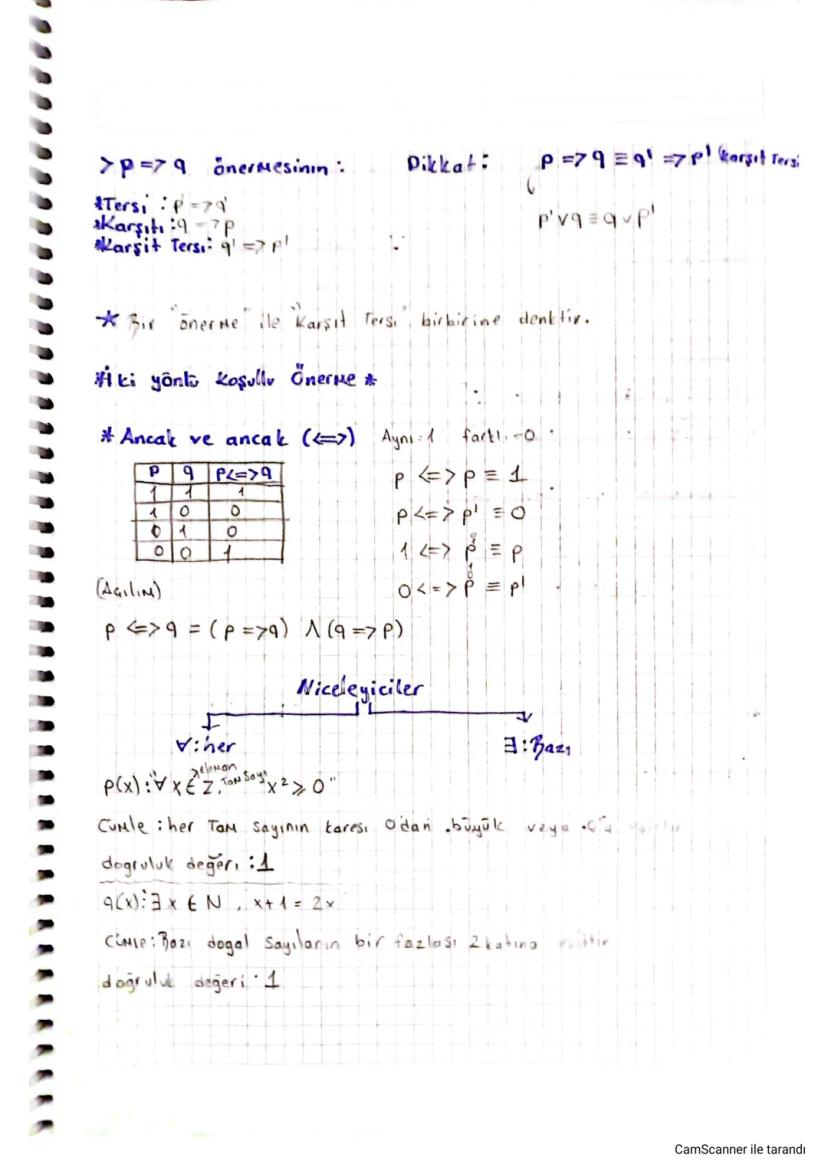 >p=>q önermesinin: Dikkat: p=>q≡q'=>p' Karşıt Tersi
*Tersi: p'=>q' p'vq≡qvp'
*Karşıtı: q=>p
*Karşıt Tersi: q'=>p'
* Bir "önerme" ile "Karşıt Tersi" birbirine denktir.
*İki yönlü Koşullu Önerme*
* Ancak ve ancak (<=>) Aynı=1 farklı=0
P q P<=>q
1 1 1
1 0 0
0 1 0
0 0 1
p<=>p≡1
p<=>p'≡0
1<=>p≡p
0<=>p≡p'
(Açılım)
p<=>q=(p=>q)Λ(q=>p)
Niceleyiciler
∀:her ∃:Bazı
eleman
Tam Sayı
p(x):"∀x∈Z, x²≥0"
Cümle: her Tam sayının karesi 0dan büyük veya
dogruluk değeri:1
q(x):∃x∈N, x+1=2x
Cümle: Bazı dogal Sayıların bir fazlası 2katına eşittir
doğruluk değeri:1
CamScanner ile tarandı